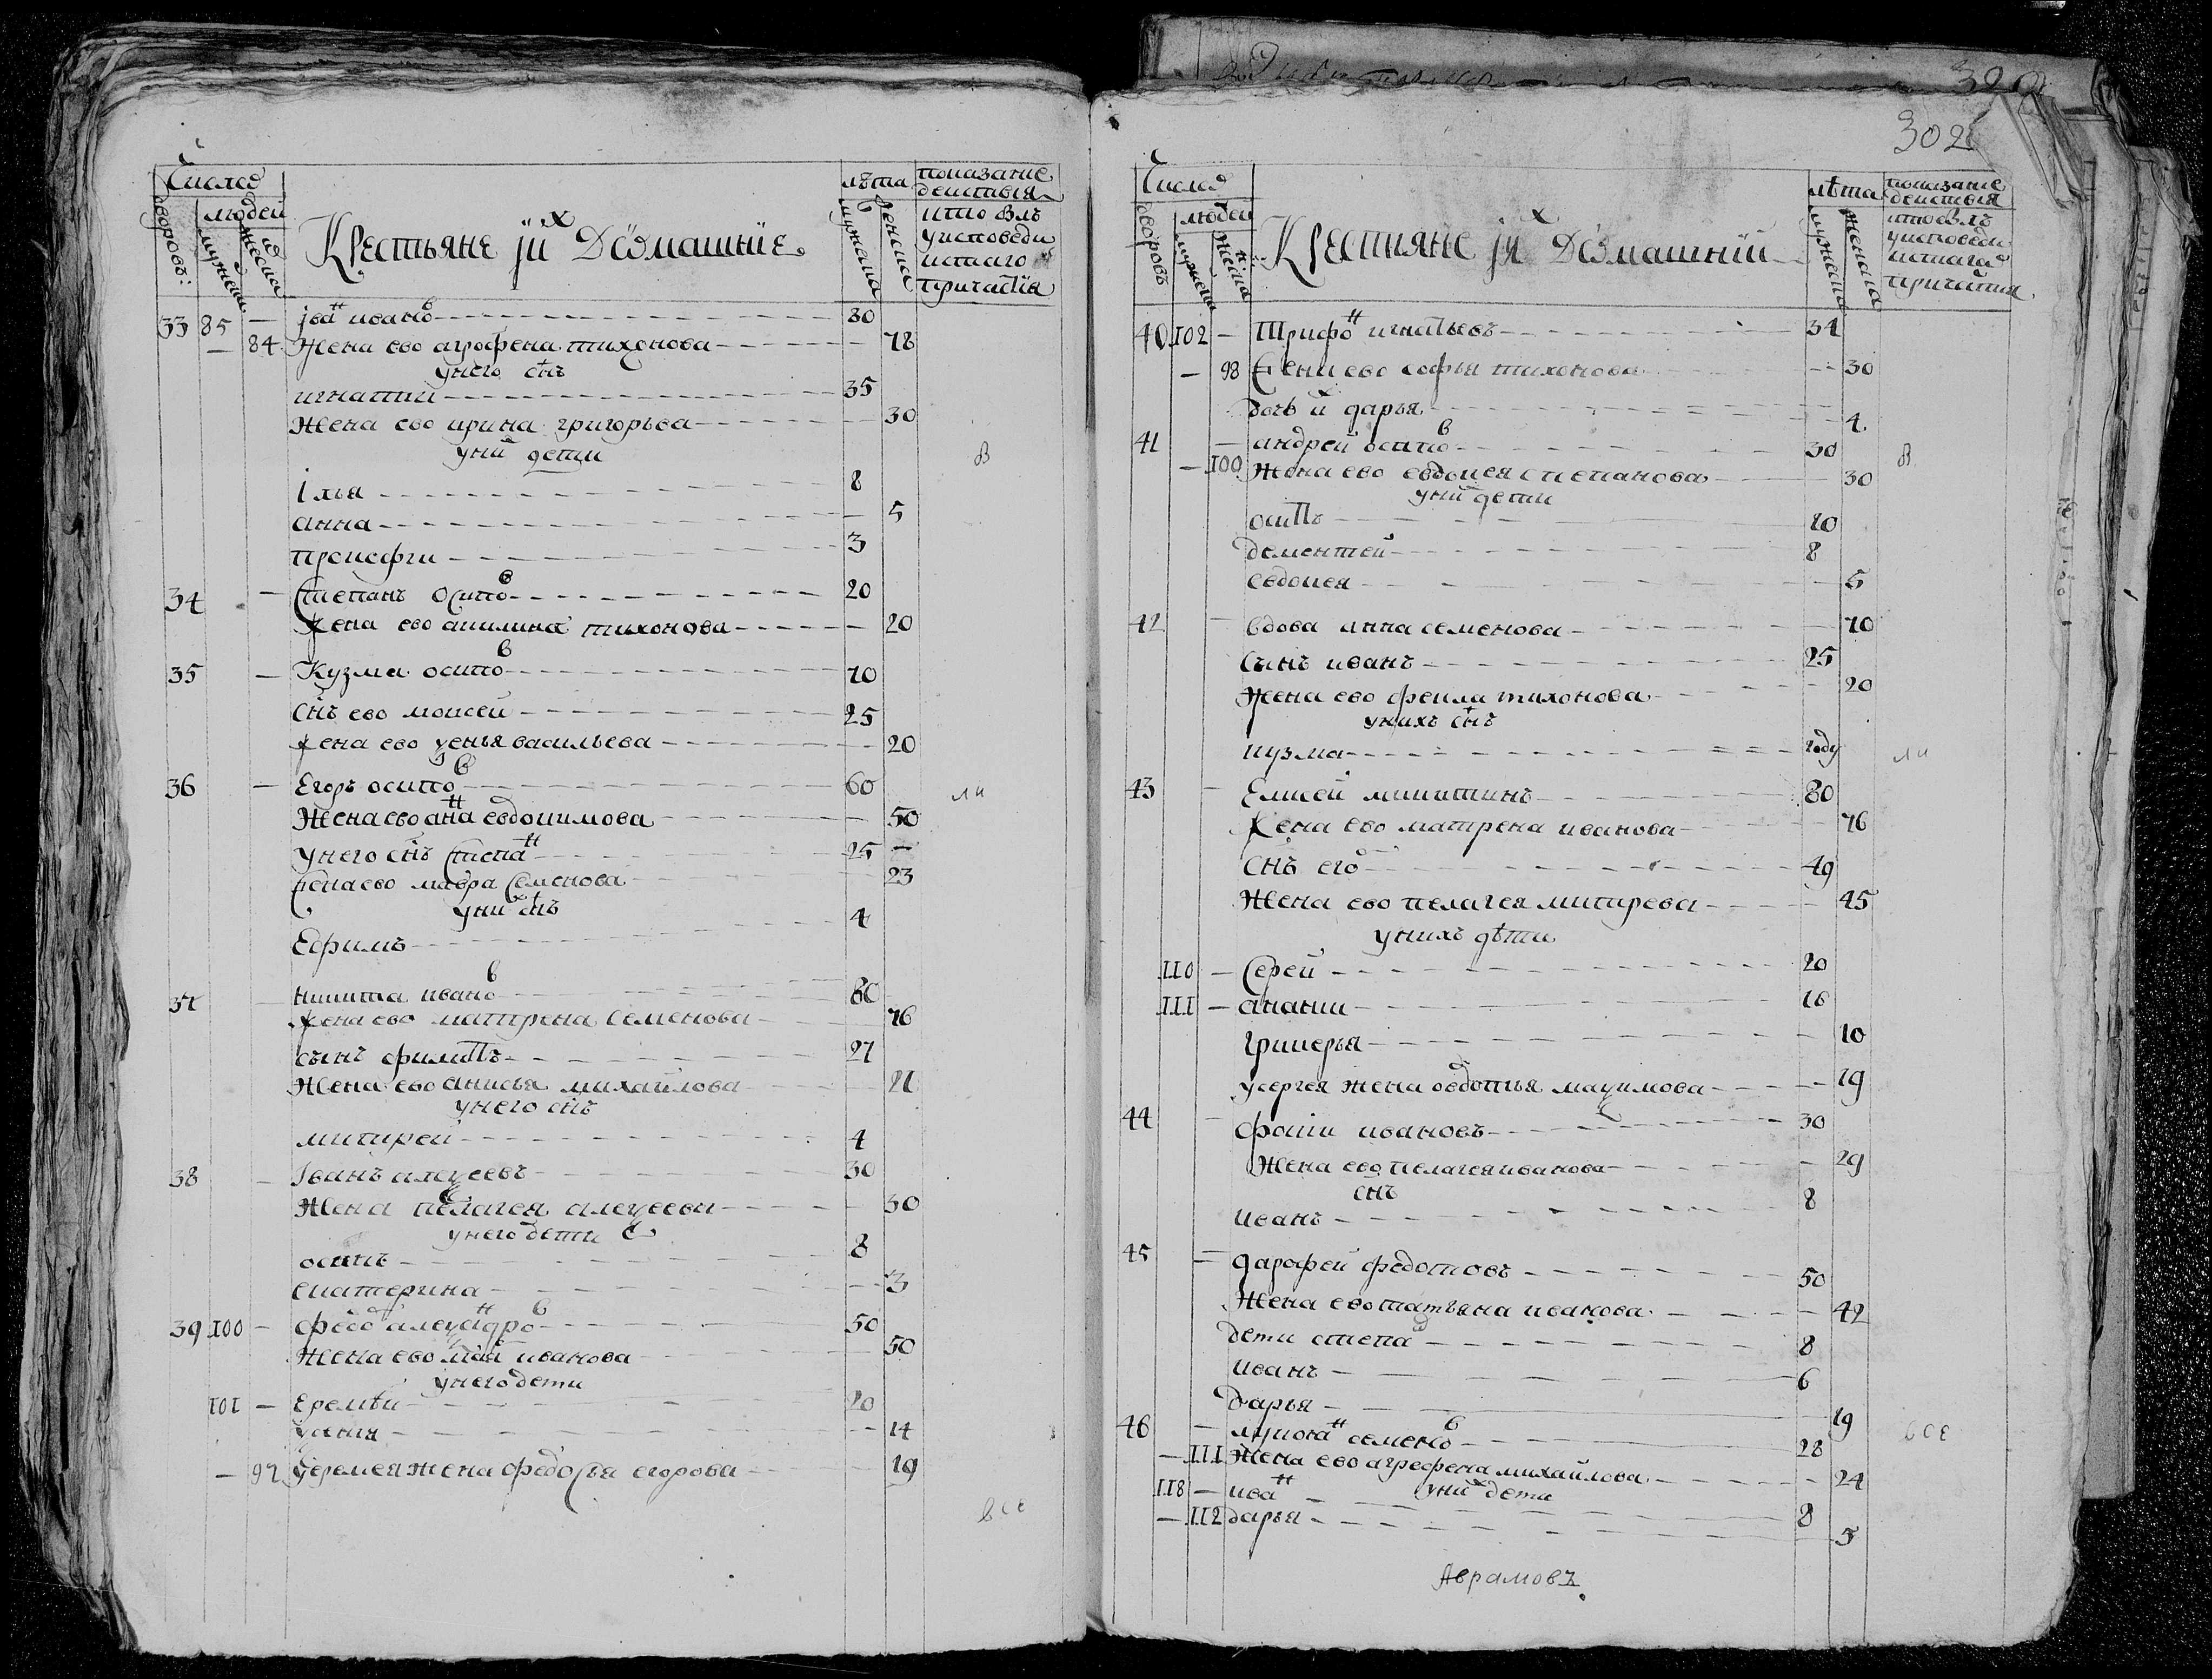 Число
дворовъ:
людей
мужеска
женска
Крестьяне ї их Домашние
лѣта
мужеска
женска
показание
действия
кто былъ
у исповеди
и стаго
причастїя
33 85 — їван иванов 80
— 84 Жена ево агрофена тихонова 78
у него снъ
игнатии 35
Жена ево ирина григорьева 30
у них дети
Iлья 8
анна 5
прокофги 3
в
34 — Степанъ Осипов 20
жена ево акилина тихонова 20
35 — Кузма осипов 70
Снъ ево моисеи 25
жена ево ѯенья васильева 20
36 — Егоръ осипов 60
ли
Жена ево анна евдокимова 50
у него снъ Степан 25 —
жена ево мавра Семенова 23
у них снъ
Ефимъ 4
37 никита иванов 80
жена ево матрена Семенова 76
сынъ филиппъ 27
Жена ево анисья михайлова 21
у него снъ
митирей 4
38 — Iванъ алеѯеевъ 30
Жена пелагея алеѯеева 30
у него дети
осипъ 8
екатерина 3
39 100 — федо алеѯандров 50
Жена ево мая иванова 50
у него дети
101 — Еремѣи 20
ѯения 14
— 97 у еремея жена федосья егорова 19
все
302
Число
дворовъ
людей
мужеска
женска
Крестьяне ї их Домашнии
лѣта
мужеска
женска
показание
действия
кто былъ
у исповеди
и стаго
причастия
40 102 — Трифон игнатьевъ 34
— 98 Жена ево софья тихонова 30
дочь их дарья 4
41 — андрей осипов 30
в
— 100 Жена ево евдокея степанова 30
у них дети
осиппъ 10
дементей 8
евдокея 5
42 — вдова анна семенова 70
Сынъ иванъ 25
Жена ево фекла тихонова 20
у нихъ снъ
кузма году
ли
43 — Елисей микитинъ 80
Жена ево матрена иванова 76
снъ его 49
Жена ево пелагея митирева 45
у нихъ дѣти
110 — Серей 20
111 — анании 16
гликерья 10
у сергея жена овдотья маѯимова 19
44 — фоми ивановъ 30
Жена ево пелагея иванова 29
снъ
иванъ 8
45 — дарофей федотовъ 50
Жена ево татьяна иванова 42
дети степа 8
иванъ 6
дарья 19
46 — лукоян семенов 28
все
— 111 Жена ево агрефена михайлова 24
у них дети
118 — иван 8
— 112 дарья 5
Аврамовъ